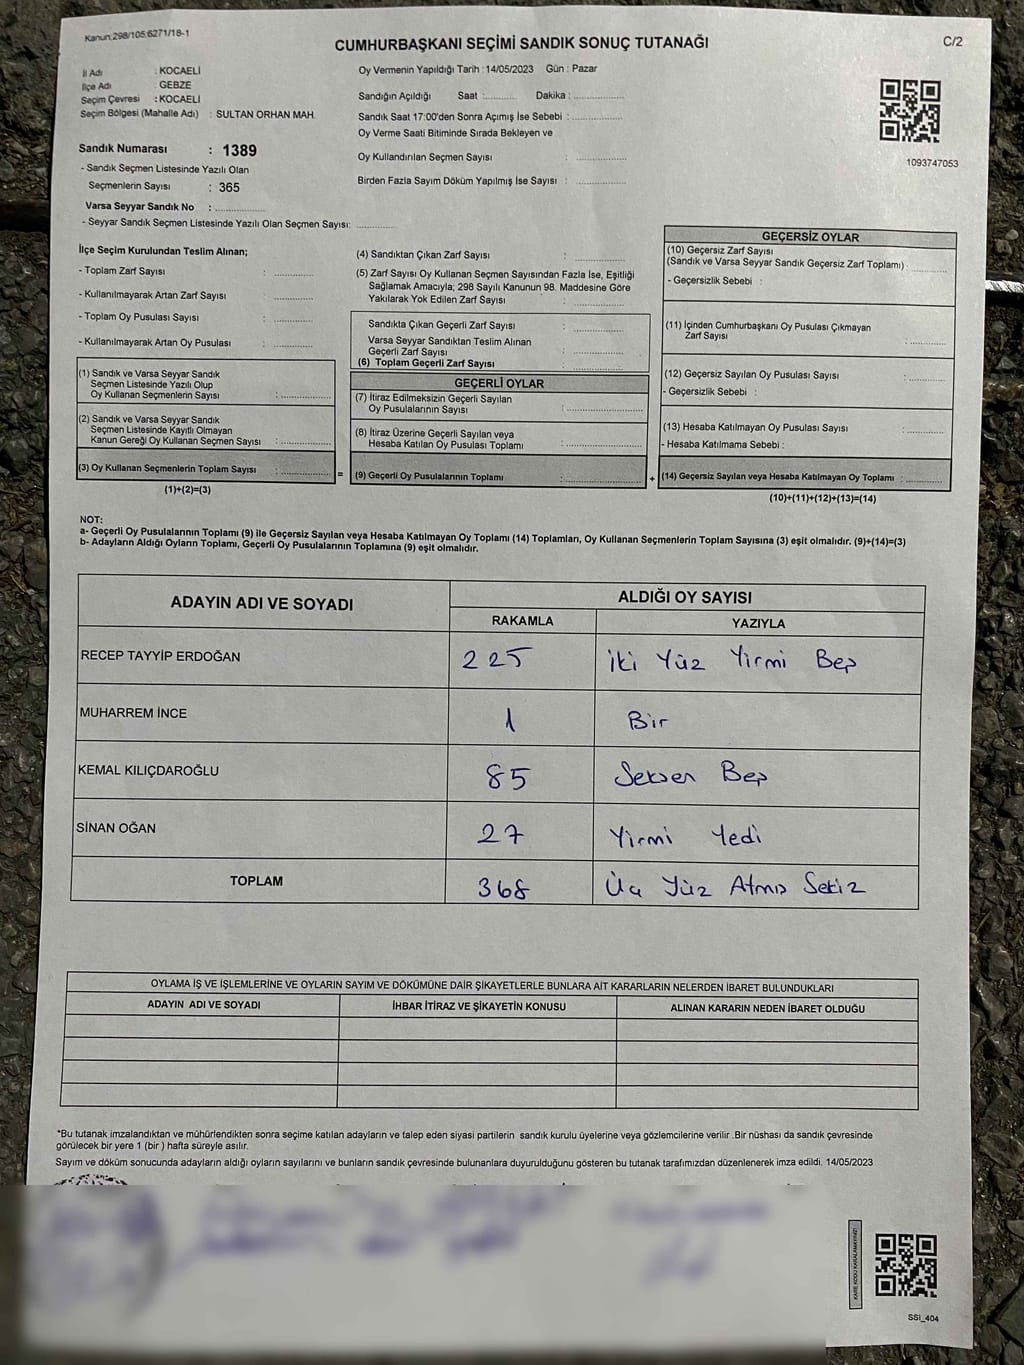 Kanun:298/105;6271/18-1
CUMHURBAŞKANI SEÇİMİ SANDIK SONUÇ TUTANAĞI
C/2
İl Adı : KOCAELİ
İlçe Adı : GEBZE
Seçim Çevresi : KOCAELİ
Seçim Bölgesi (Mahalle Adı) : SULTAN ORHAN MAH.
Sandık Numarası : 1389
- Sandık Seçmen Listesinde Yazılı Olan
Seçmenlerin Sayısı : 365
Varsa Seyyar Sandık No : ..............
- Seyyar Sandık Seçmen Listesinde Yazılı Olan Seçmen Sayısı: ............
Oy Vermenin Yapıldığı Tarih : 14/05/2023 Gün : Pazar
Sandığın Açıldığı Saat :......... Dakika : ..............
Sandık Saat 17:00'den Sonra Açımış İse Sebebi : ..............
Oy Verme Saati Bitiminde Sırada Bekleyen ve
Oy Kullandırılan Seçmen Sayısı : ..............
Birden Fazla Sayım Döküm Yapılmış İse Sayısı : ..............
1093747053
İlçe Seçim Kurulundan Teslim Alınan;
- Toplam Zarf Sayısı : ............
- Kullanılmayarak Artan Zarf Sayısı : ............
- Toplam Oy Pusulası Sayısı : ............
- Kullanılmayarak Artan Oy Pusulası : ............
(1) Sandık ve Varsa Seyyar Sandık
Seçmen Listesinde Yazılı Olup
Oy Kullanan Seçmenlerin Sayısı : ..............
(2) Sandık ve Varsa Seyyar Sandık
Seçmen Listesinde Kayıtlı Olmayan
Kanun Gereği Oy Kullanan Seçmen Sayısı : ..............
(3) Oy Kullanan Seçmenlerin Toplam Sayısı : ..............
(1)+(2)=(3)
=
(4) Sandıktan Çıkan Zarf Sayısı : ..............
(5) Zarf Sayısı Oy Kullanan Seçmen Sayısından Fazla İse, Eşitliği
Sağlamak Amacıyla; 298 Sayılı Kanunun 98. Maddesine Göre
Yakılarak Yok Edilen Zarf Sayısı : ..............
Sandıkta Çıkan Geçerli Zarf Sayısı : ..............
Varsa Seyyar Sandıktan Teslim Alınan
Geçerli Zarf Sayısı : ..............
(6) Toplam Geçerli Zarf Sayısı : ..............
GEÇERLİ OYLAR
(7) İtiraz Edilmeksizin Geçerli Sayılan
Oy Pusulalarının Sayısı : ..............
(8) İtiraz Üzerine Geçerli Sayılan veya
Hesaba Katılan Oy Pusulası Toplamı : ..............
(9) Geçerli Oy Pusulalarının Toplamı : ..............
+
GEÇERSİZ OYLAR
(10) Geçersiz Zarf Sayısı
(Sandık ve Varsa Seyyar Sandık Geçersiz Zarf Toplamı) : ..........
- Geçersizlik Sebebi :
(11) İçinden Cumhurbaşkanı Oy Pusulası Çıkmayan
Zarf Sayısı : ..........
(12) Geçersiz Sayılan Oy Pusulası Sayısı : ..........
- Geçersizlik Sebebi :
(13) Hesaba Katılmayan Oy Pusulası Sayısı : ..........
- Hesaba Katılmama Sebebi :
(14) Geçersiz Sayılan veya Hesaba Katılmayan Oy Toplamı : ..........
(10)+(11)+(12)+(13)=(14)
NOT:
a- Geçerli Oy Pusulalarının Toplamı (9) ile Geçersiz Sayılan veya Hesaba Katılmayan Oy Toplamı (14) Toplamları, Oy Kullanan Seçmenlerin Toplam Sayısına (3) eşit olmalıdır. (9)+(14)=(3)
b- Adayların Aldığı Oyların Toplamı, Geçerli Oy Pusulalarının Toplamına (9) eşit olmalıdır.
ADAYIN ADI VE SOYADI ALDIĞI OY SAYISI
RAKAMLA YAZIYLA
RECEP TAYYİP ERDOĞAN 225 İki Yüz Yirmi Beş
MUHARREM İNCE 1 Bir
KEMAL KILIÇDAROĞLU 85 Seksen Beş
SİNAN OĞAN 27 Yirmi Yedi
TOPLAM 368 Üç Yüz Atmış Sekiz
OYLAMA İŞ VE İŞLEMLERİNE VE OYLARIN SAYIM VE DÖKÜMÜNE DAİR ŞİKAYETLERLE BUNLARA AİT KARARLARIN NELERDEN İBARET BULUNDUKLARI
ADAYIN ADI VE SOYADI İHBAR İTİRAZ VE ŞİKAYETİN KONUSU ALINAN KARARIN NEDEN İBARET OLDUĞU
*Bu tutanak imzalandıktan ve mühürlendikten sonra seçime katılan adayların ve talep eden siyasi partilerin sandık kurulu üyelerine veya gözlemcilerine verilir .Bir nüshası da sandık çevresinde
görülecek bir yere 1 (bir ) hafta süreyle asılır.
Sayım ve döküm sonucunda adayların aldığı oyların sayılarını ve bunların sandık çevresinde bulunanlara duyurulduğunu gösteren bu tutanak tarafımızdan düzenlenerek imza edildi. 14/05/2023
KARE KODU KARALAMAYINIZ!
SSİ_404